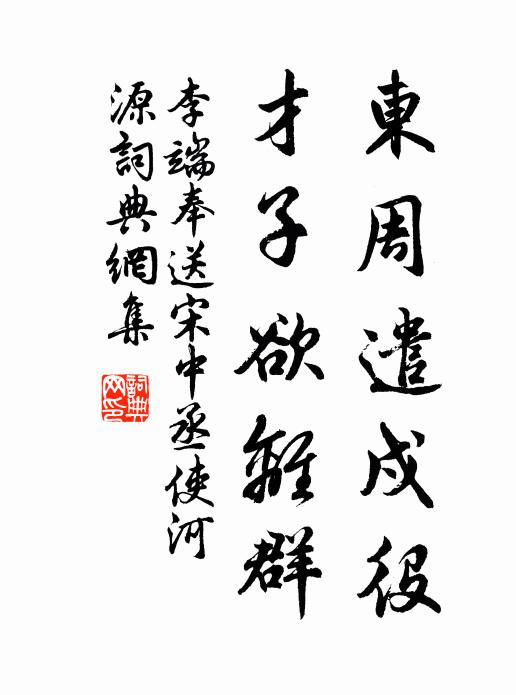 東周遣戍役
才子欲離群
李端奉送宋中丞使河
源詞典網集
詞典
网印